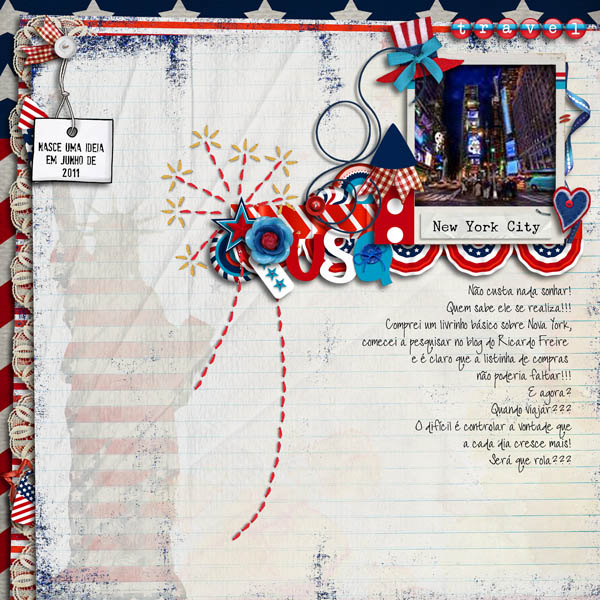 travel
NASCE UMA IDEIA
EM JUNHO DE
2011
New York City
usa
Não custa nada sonhar!
Quem sabe ele se realiza!!!
Comprei um livrinho básico sobre Nova York,
comecei a pesquisar no blog do Ricardo Freire
e é claro que a listinha de compras
não poderia faltar!!!
E agora?
Quando viajar???
O difícil é controlar a vontade que
a cada dia cresce mais!
Será que rola???